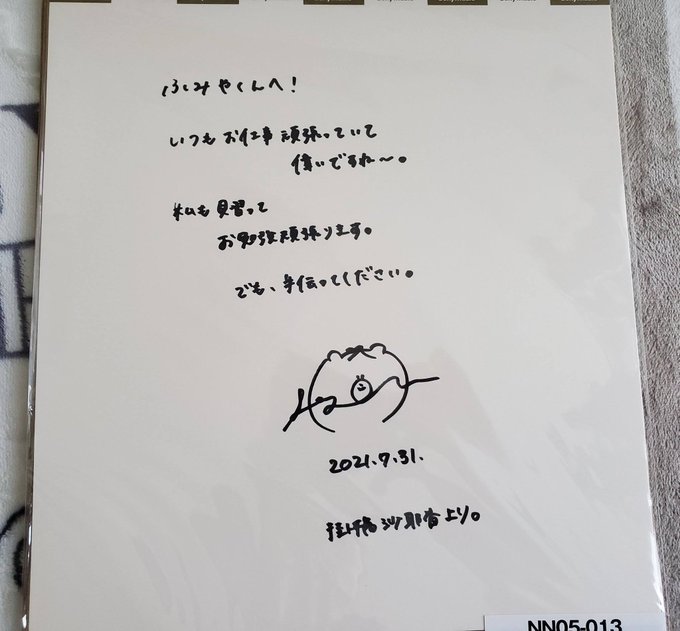 ふみやくんへ!
いつもお仕事頑張っていて
偉いですね〜。
私も見習って
お勉強頑張ります。
でも、手伝ってください。
2021.7.31.
掛橋沙耶香より。
NN05-013